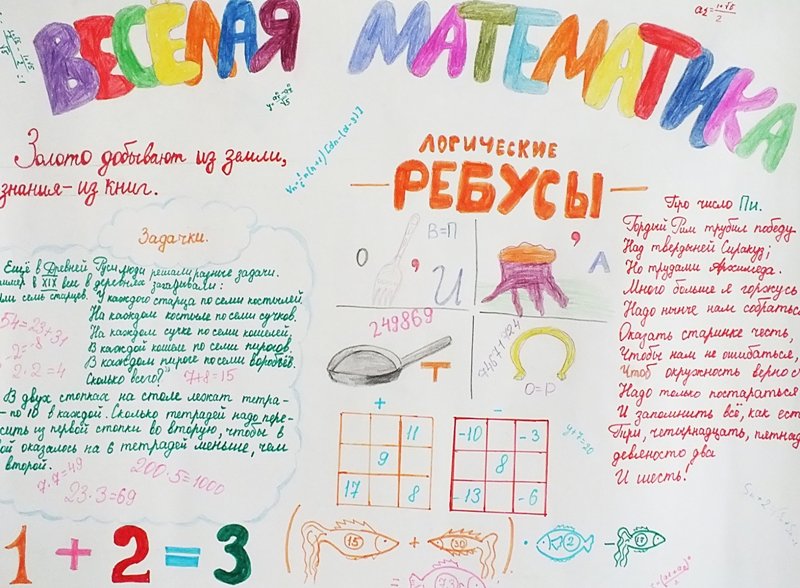 ВЕСЁЛАЯ МАТЕМАТИКА
Золото добывают из земли,
знания - из книг.
Задачки.
Ещё в Древней Руси люди решали разные задачи.
в XIX веке в деревнях загадывали:
семь старцев. У каждого старца по семи костылей,
На каждом костыле по семи сучков.
На каждом сучке по семи кошелей,
В каждой кошеле по семи пирогов,
В каждом пироге по семи воробьёв.
Сколько всего?
7+8=15
54=23+31
2·2=4
В двух стопках на столе лежат тетра-
- по 10 в каждой. Сколько тетрадей надо пере-
сить из первой стопки во вторую, чтобы в
оказалось на 6 тетрадей меньше, чем
второй.
7·7=49
200·5=1000
23·3=69
1 + 2 = 3
ЛОГИЧЕСКИЕ
- РЕБУСЫ -
О , В=П И
, А
249869
Т
О=Р
+
11
9
17 8
-
-10 -3
8
-13 -6
( 15 + 30 ) · 2 -
=
Про число Пи.
Гордый Рим трубил победу
Над твердыней Сиракуз;
Но трудами Архимеда
Много больше я горжусь
Надо нынче нам собраться
Оказать старинке честь,
Чтобы нам не ошибаться,
Чтоб окружность верно
Надо только постараться
И запомнить всё, как есть
Три, четырнадцать, пятнад
девяносто два
И шесть!